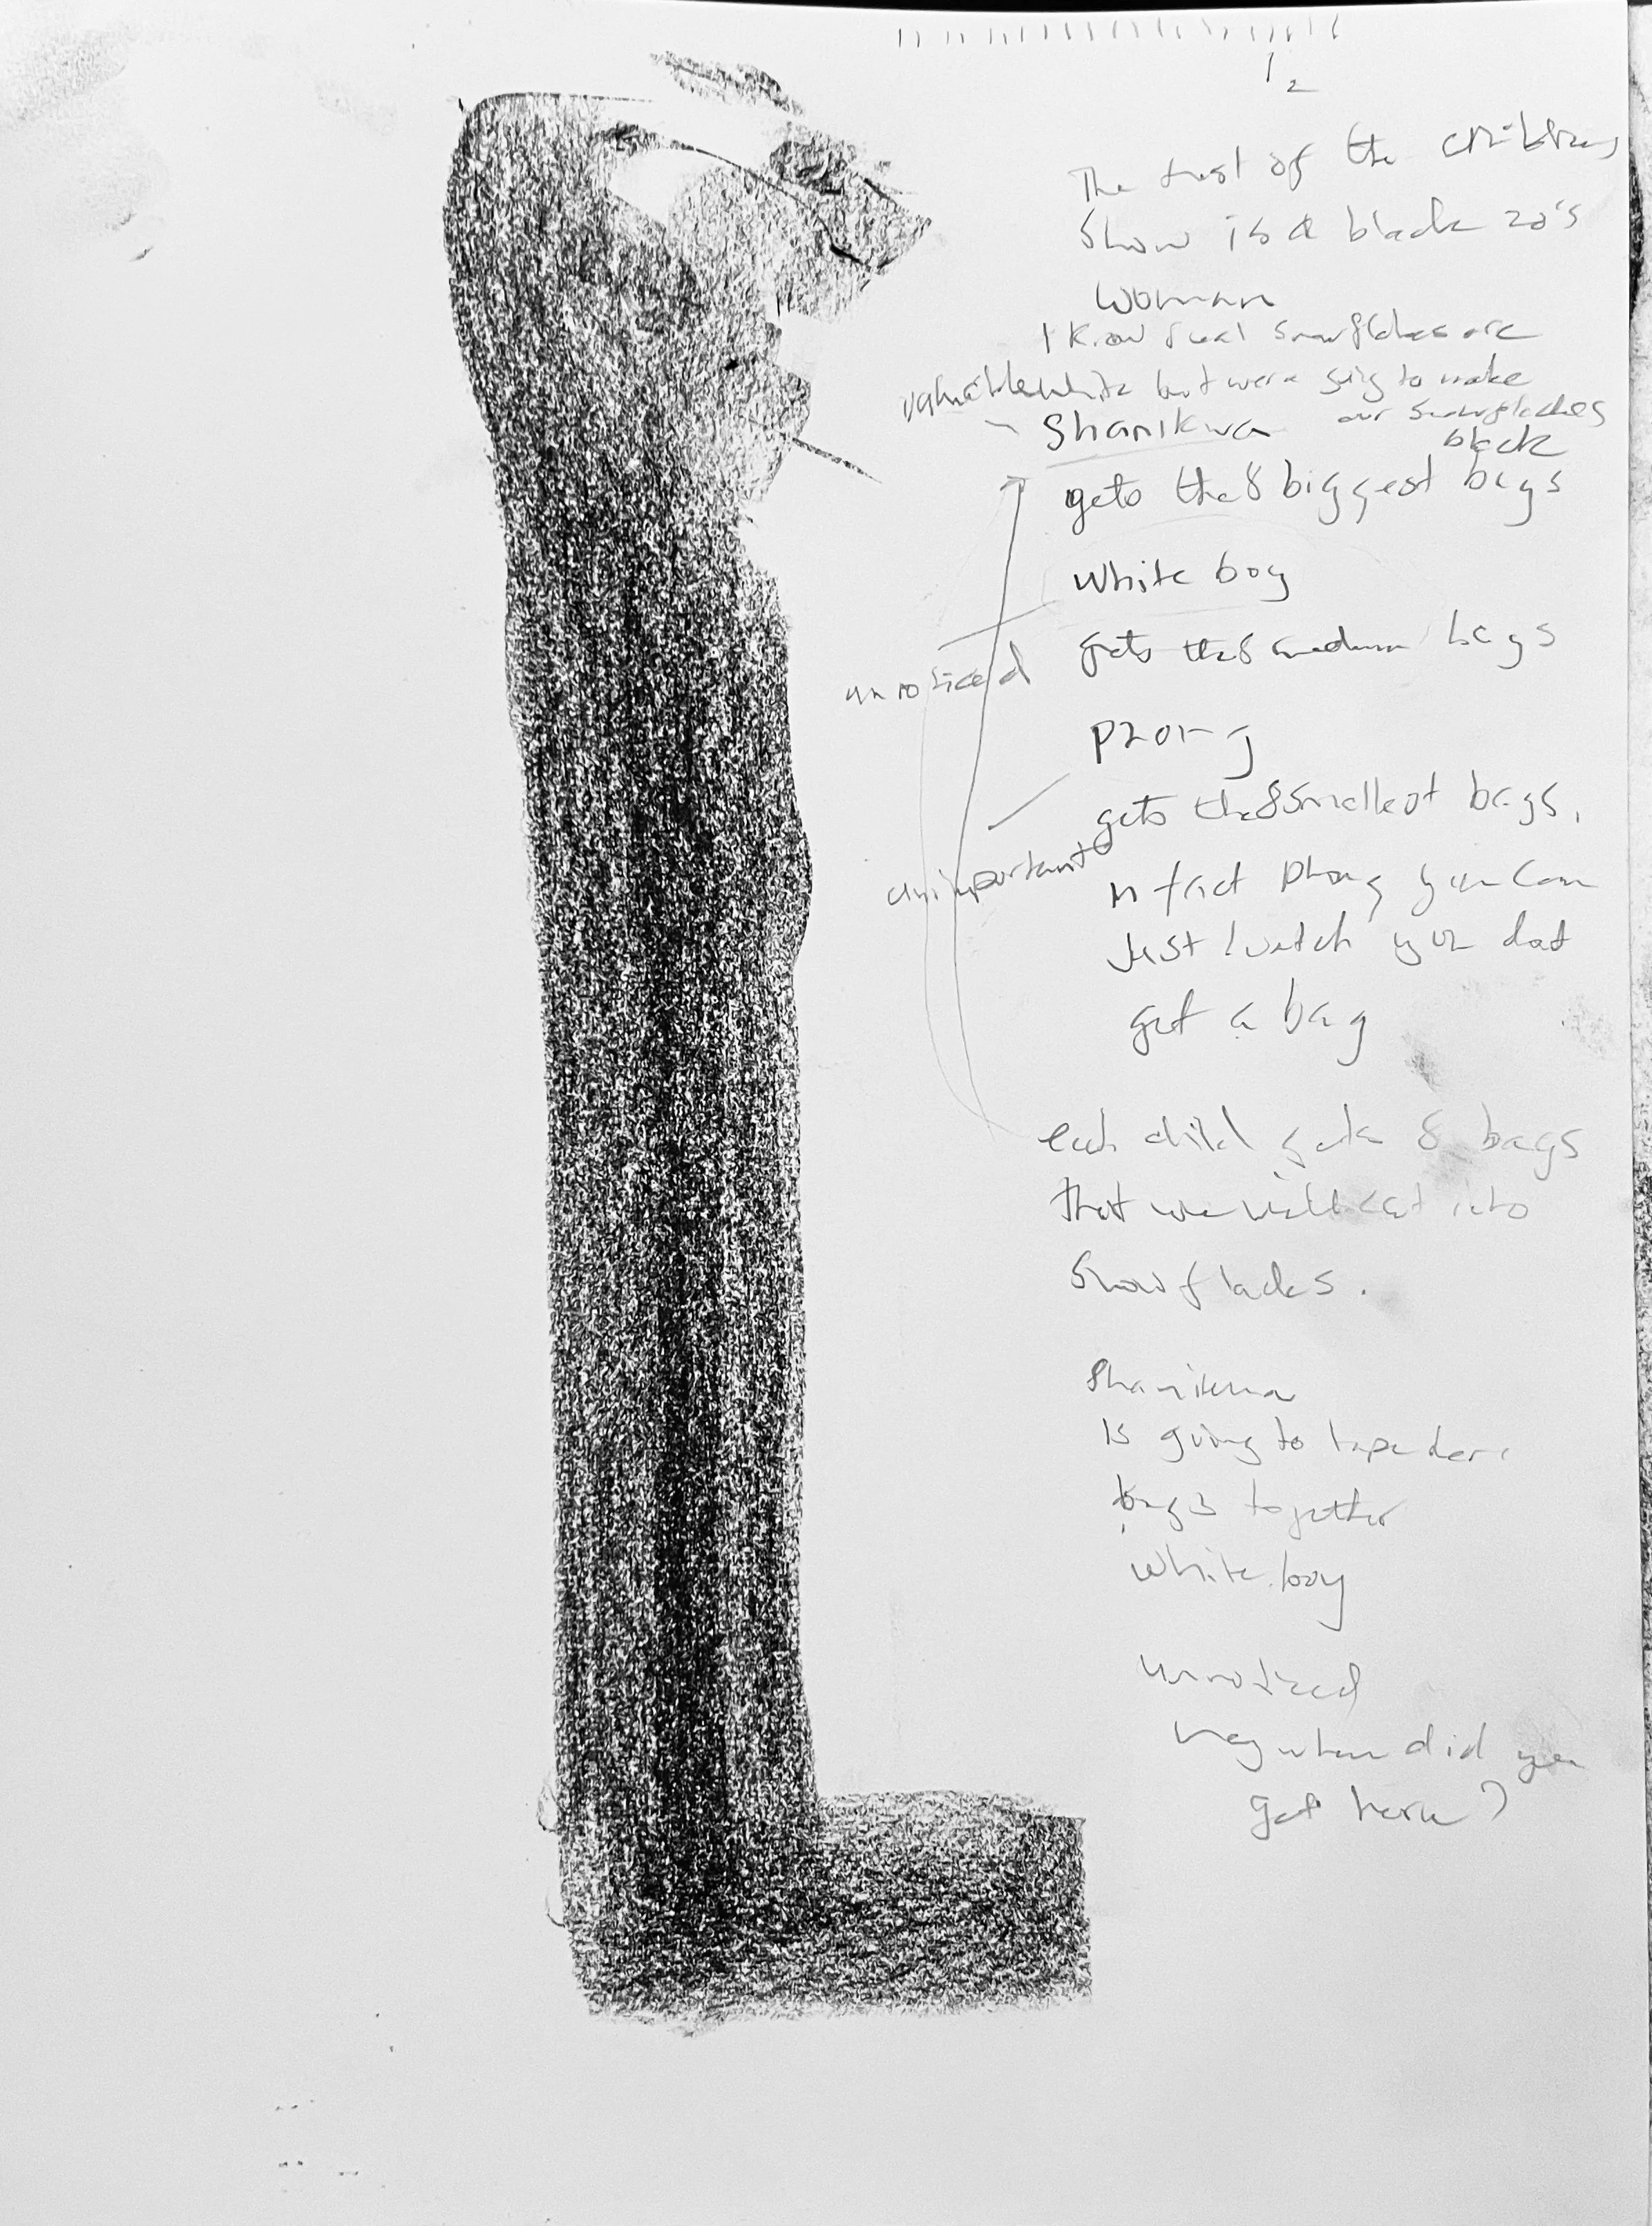 1
2
The host of the childrens
Show is a black 20's
woman
I know real snowflakes are
white but were going to make
our snowflackes
black
valuable
Shanikwa
gets the 8 biggest bags
white boy
gets the 8 medium bags
unnoticed
Phong
gets the 8 smallest bags.
unimportant
in fact Phong you can
Just watch you dont
get a bag
each child gets 8 bags
that we will cut into
Snowflackes.
Shanikwa
Is going to tape her
bags together
white boy
unnoticed
hey when did you
get here?